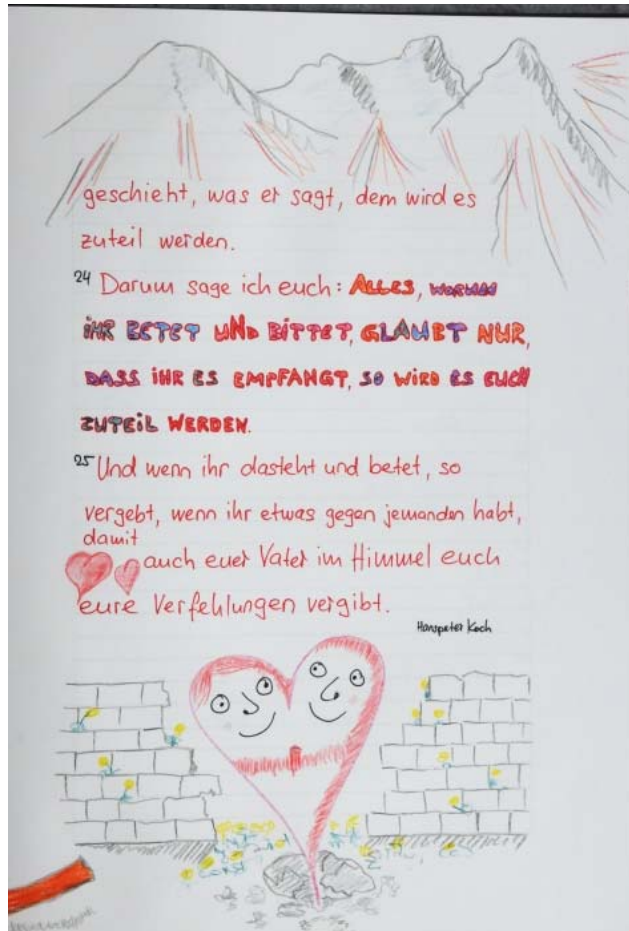 geschieht, was er sagt, dem wird es
zuteil werden.
24 Darum sage ich euch: ALLES, WORUM
IHR BETET UND BITTET, GLAUBT NUR,
DASS IHR ES EMPFANGT, SO WIRD ES EUCH
ZUTEIL WERDEN.
25 Und wenn ihr dasteht und betet, so
vergebt, wenn ihr etwas gegen jemanden habt,
damit
auch euer Vater im Himmel euch
eure Verfehlungen vergibt.
Hanspeter Koch